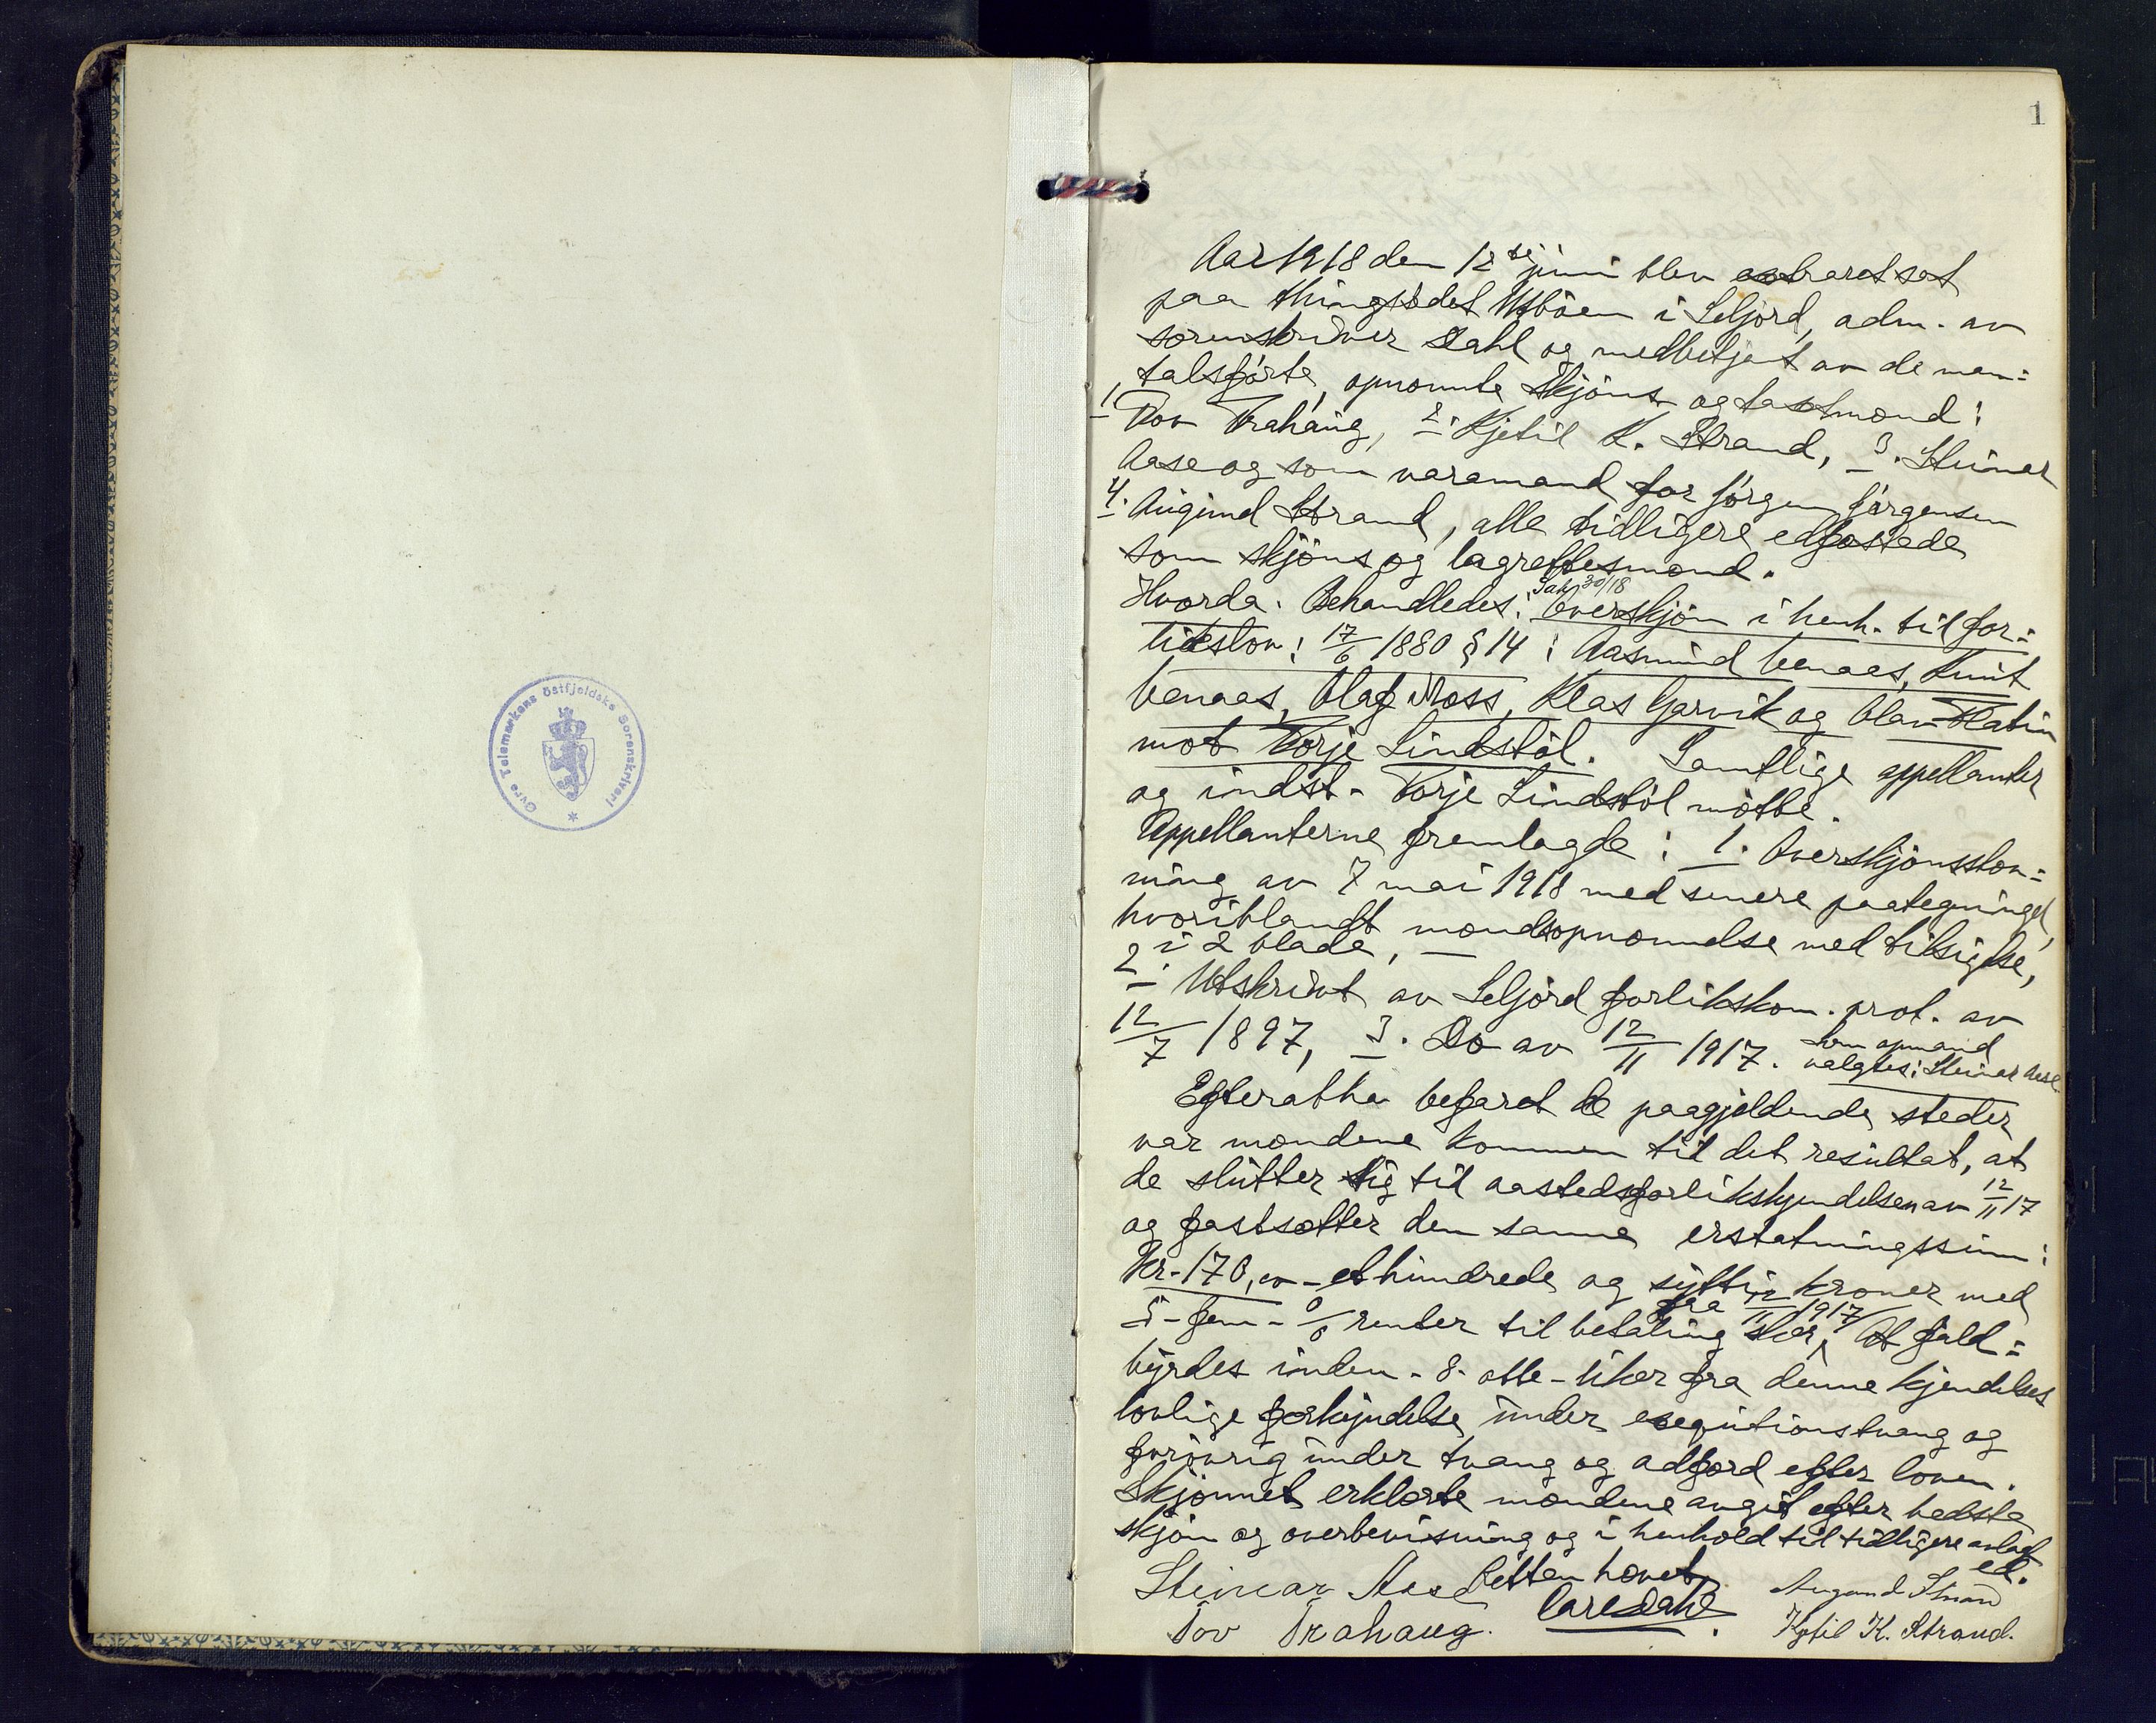 Øvre Telemarkens Østfjeldske Sorenskriveri
1
Aar 1918 den 12te juni blev extraret sat
paa thingstedet Utbøen i Seljord, adm. av
sorenskriver Dahl og medbetjent av de man=
talsførte, opnævnte skjøns og takstmænd:
1. Tov Trahaug, 2. Kjetil K. Strand, 3. Steinar
Aase og som varamand for Jørgen Jørgensen
4. Augund Strand, alle tidligere edfæstede
som skjøns og lagrettesmænd.
Hvorda. Behandledes: Sak 30/18 Overskjøn i henh. til for=
liksslov: 17/6 1880 § 14: Aasmund Venaas, Knut
Venaas, Olaf Moss, Klas Garvik og Olav Flatin
mot Torje Lindstøl. Samtlige appellanter
og indst. Torje Lindstøl møtte.
Appellanterne fremlagde: 1. Overskjønsstev=
ning av 7 mai 1918 med senere paategninger,
hvoriblandt mændsopnævnelse med tilsigelse,
i 2 blade, —
2. Utskrivt av Seljord forlikskom. prot. av
12/7 1897, 3. Do av 12/11 1917. Som opmand
valgtes: Steinar Aase.
Efterathа befaret de paagjeldende steder
var mændene kommen til det resultat, at
de slutter sig til aastedsforlikskjendelsen av 12/11 17
og fastsætter den samme erstatningssum:
Kr. 170,00 - et hundrede og sytti kroner med
5 - fem - % renter fra 12/11 1917 til betaling sker, At fuld=
byrdes inden - 8 - otte - uker fra denne kjendelses
lovlige forkyndelse under exequtionstvang og
forøvrig under tvang og adfærd efter loven.
Skjønnet erklærte mændene avgit efter bedste
skjøn og overbevisning og i henhold til tidligere avlagt
ed.
Retten hævet.
Steinar Aase Carl Dahl. Augund Strand
Tov Trahaug. Kjetil K. Strand.